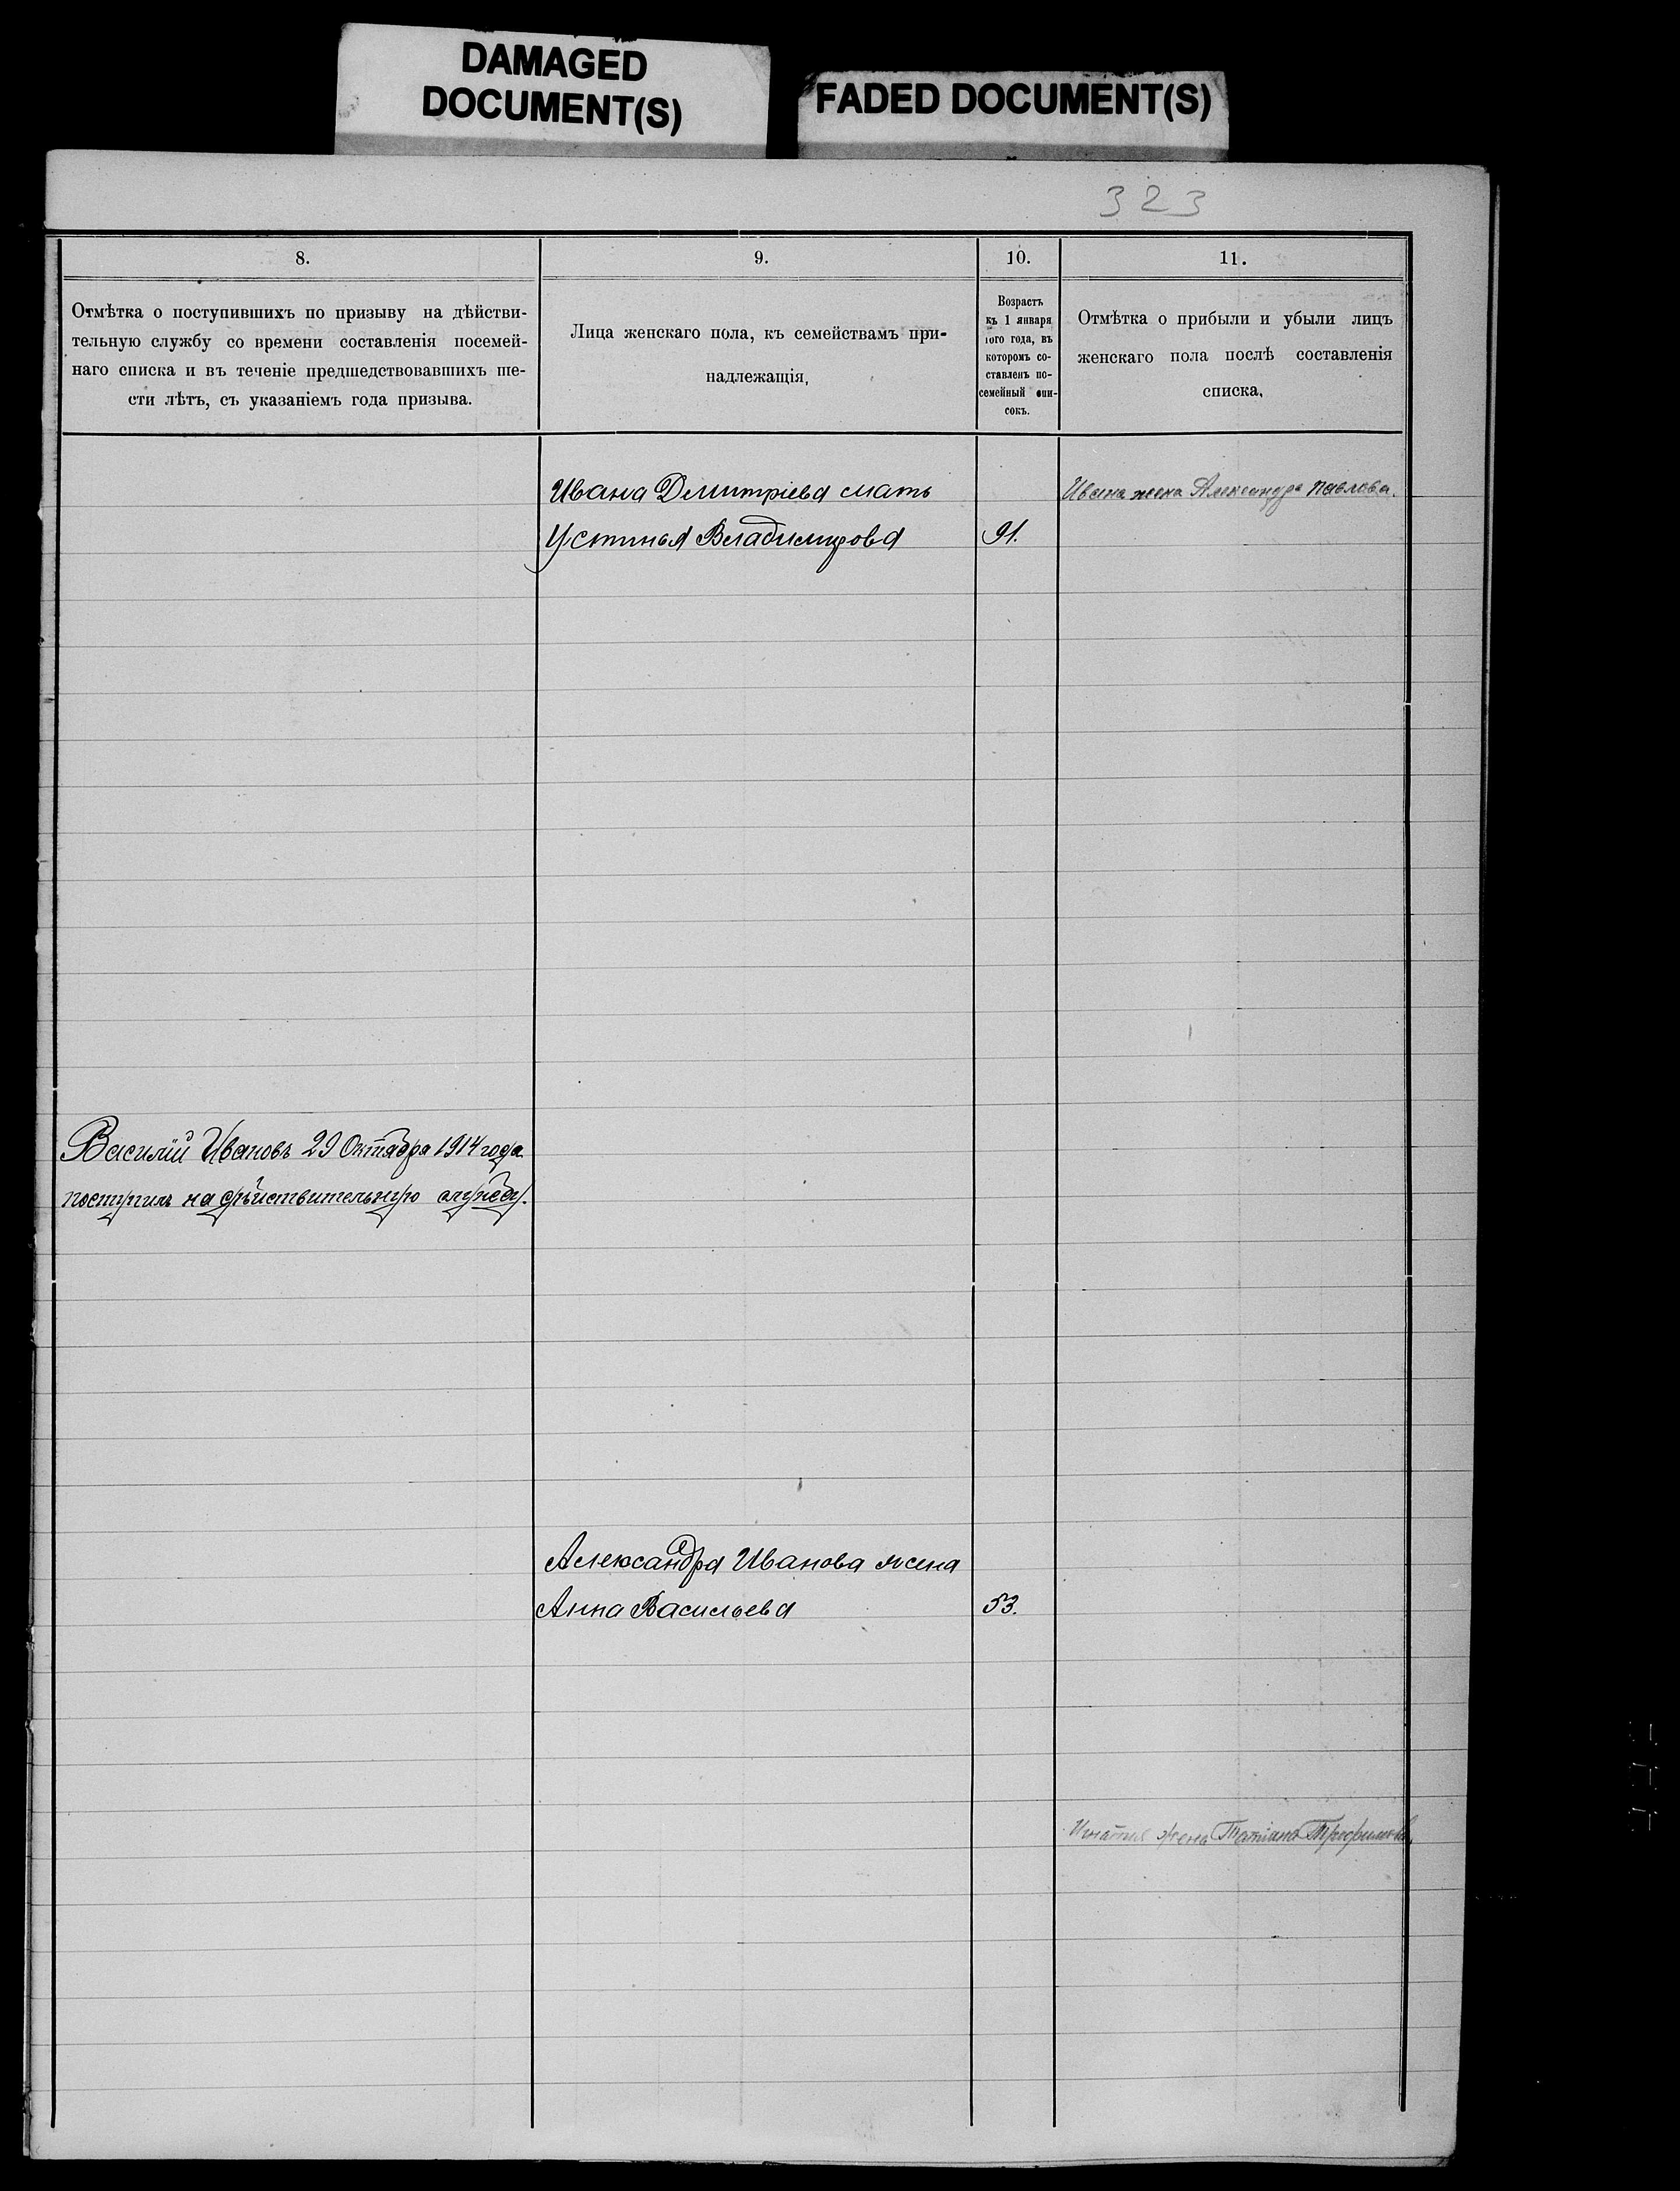 DAMAGED
DOCUMENT(S)
FADED DOCUMENT(S)
323
8.
Отмѣтка о поступившихъ по призыву на дѣйстви-
тельную службу со времени составленія посемей-
наго списка и въ теченіе предшедствовавшихъ ше-
сти лѣтъ, съ указаніемъ года призыва.
9.
Лица женскаго пола, къ семействамъ при-
надлежащія,
10.
Возрастъ
къ 1 января
того года, въ
которомъ со-
ставленъ по-
семейный спи-
сокъ.
11.
Отмѣтка о прибыли и убыли лицъ
женскаго пола послѣ составленія
списка,
Ивана Дмитріева мать
Устинья Владимирова
91.
Ивана жена Александра Павлова.
Василій Ивановъ 29 Октября 1914 года
поступилъ на дѣйствительную службу.
Александра Иванова жена
Анна Васильева
53.
Игнатія жена Татіана Трофимова